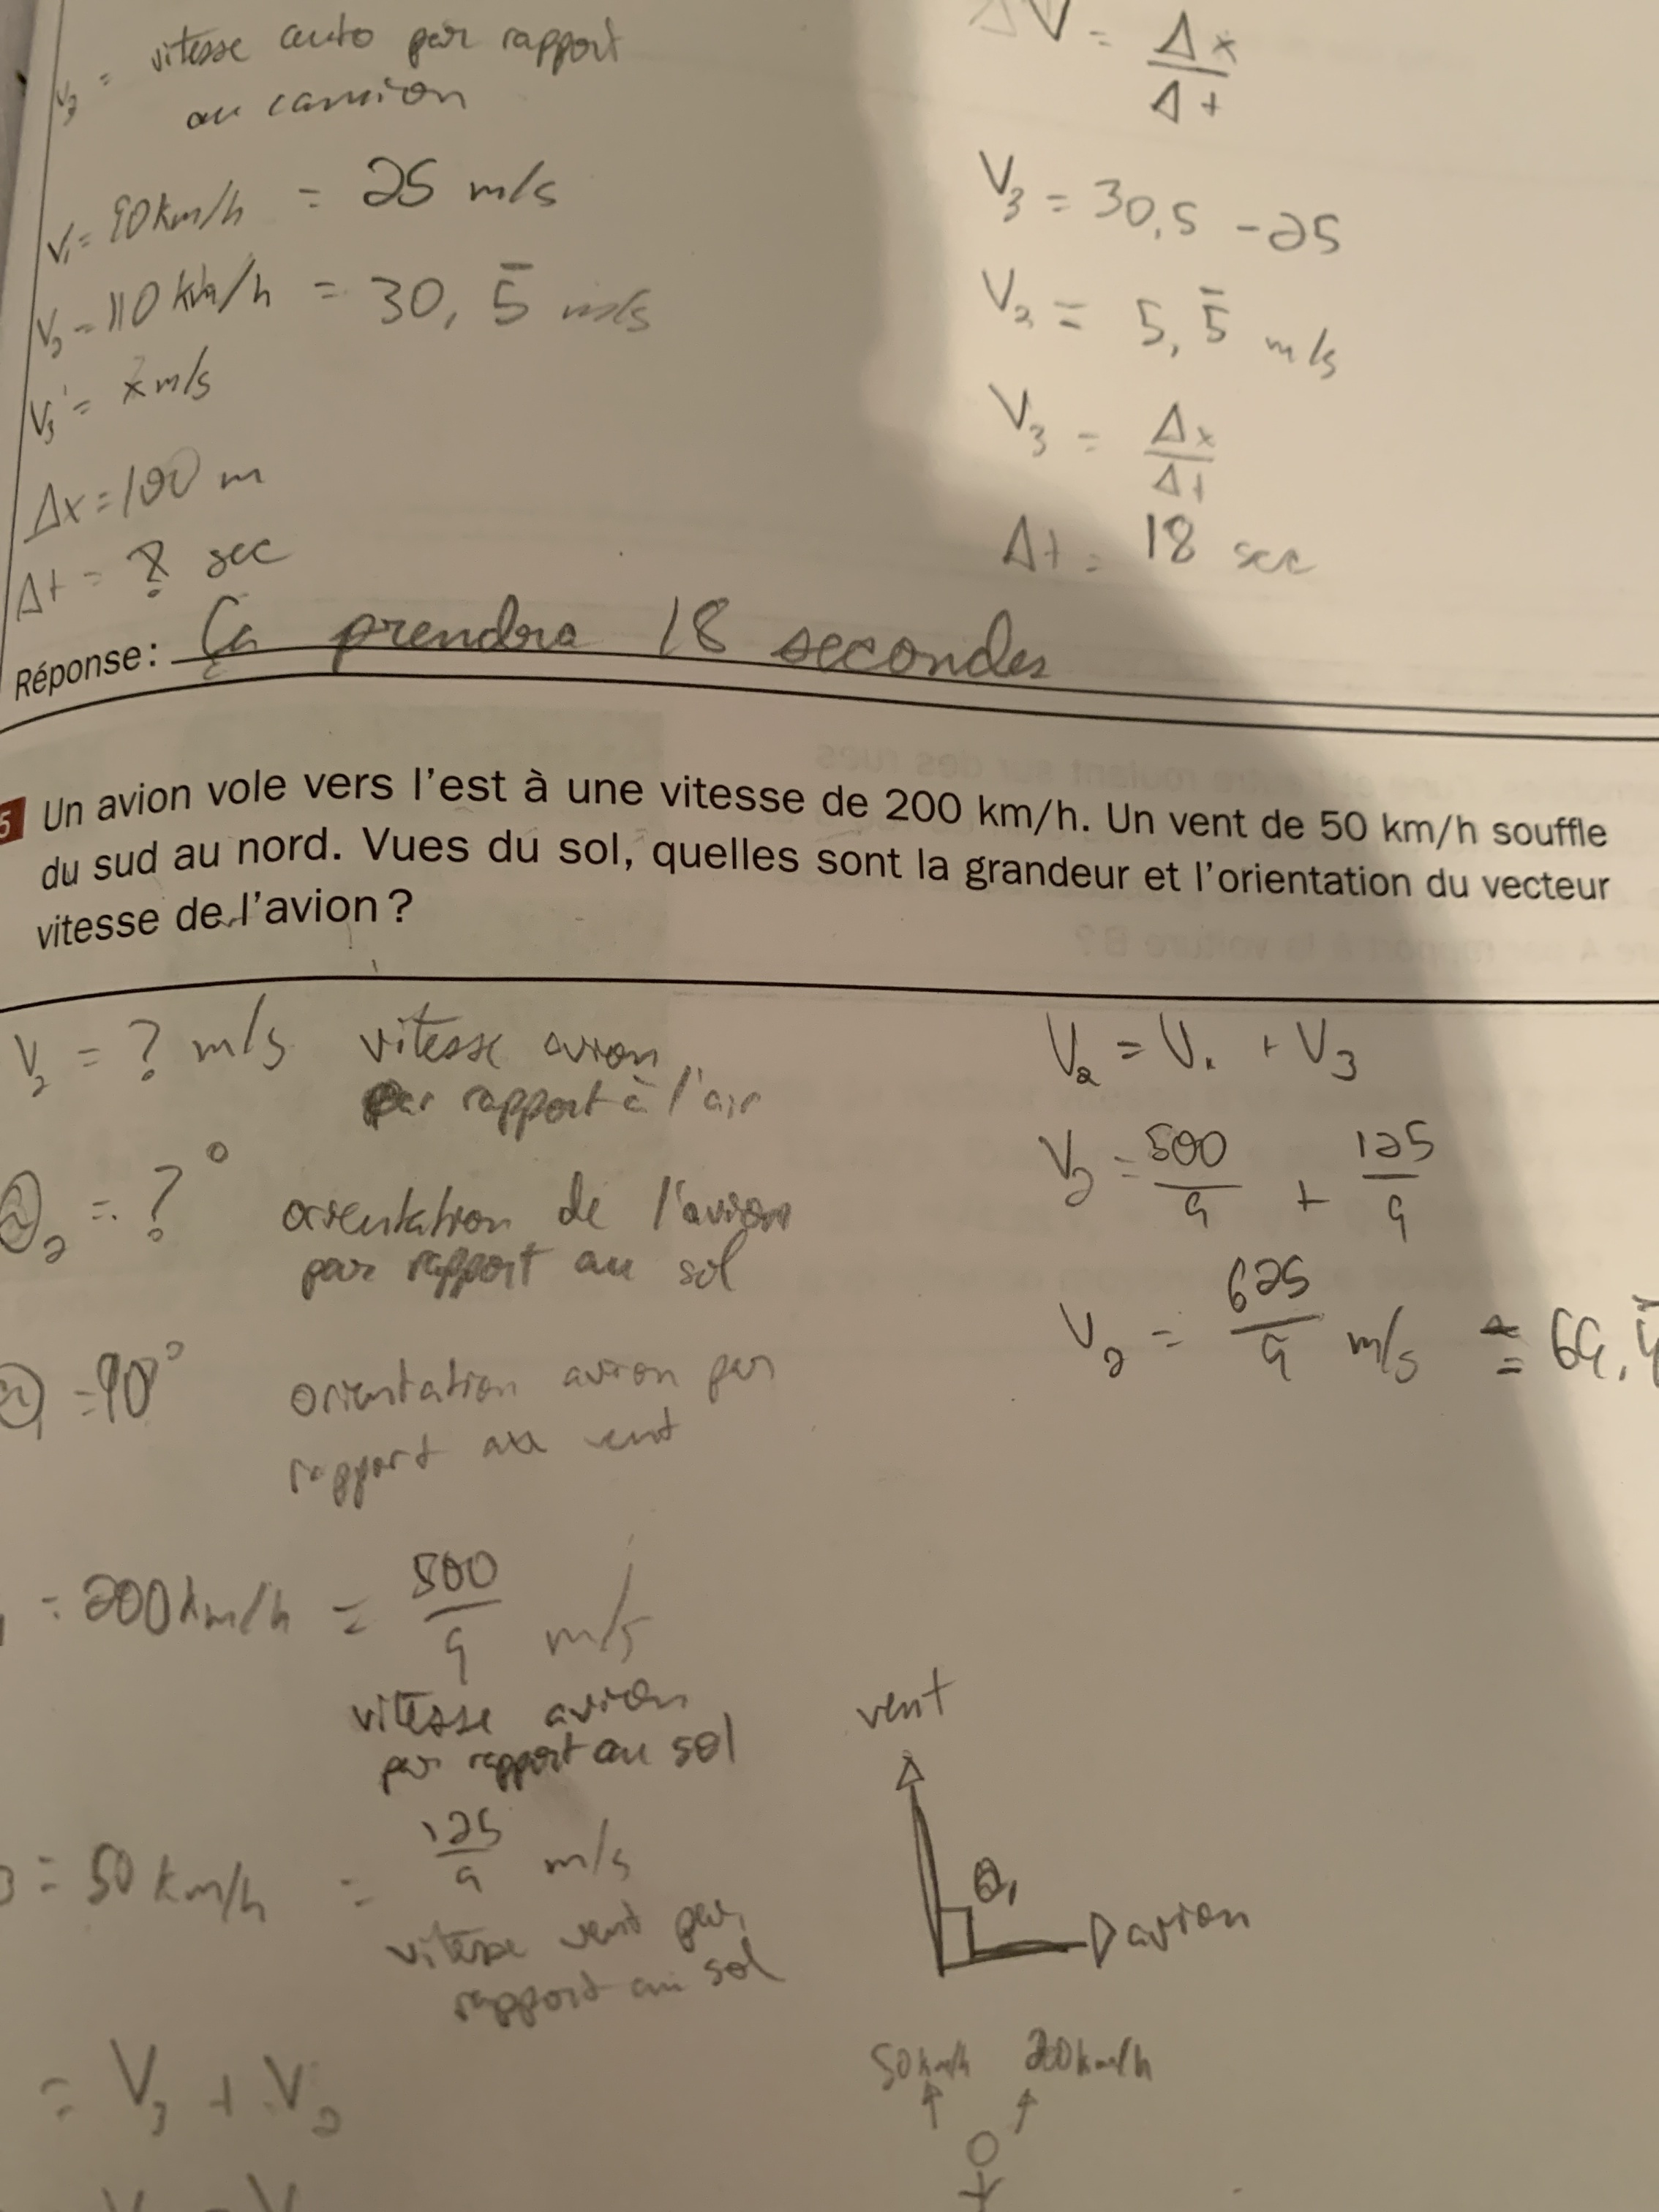 V₂ = vitesse auto par rapport
au camion
V₁ = 90 km/h = 25 m/s
V₂ = 110 km/h = 30,5̅ m/s
V₃ = x m/s
Δx = 100 m
Δt = ? sec
ΔV = Δx/Δt
V₃ = 30,5 - 25
V₂ = 5,5̅ m/s
V₃ = Δx/Δt
Δt = 18 sec
Réponse : Ça prendra 18 secondes
5 Un avion vole vers l'est à une vitesse de 200 km/h. Un vent de 50 km/h souffle
du sud au nord. Vues du sol, quelles sont la grandeur et l'orientation du vecteur
vitesse de l'avion ?
V₂ = ? m/s vitesse avion
par rapport à l'air
₂ = ?° orientation de l'avion
par rapport au sol
₁ = 90° orientation avion par
rapport au vent
= 200 km/h = 500/9 m/s
vitesse avion
par rapport au sol
3 = 50 km/h = 125/9 m/s
vitesse vent par
rapport au sol
= V₃ + V₂
V₂ = V₁ + V₃
V₂ = 500/9 + 125/9
V₂ = 625/9 m/s = 69,4̅
vent
θ₁
avion
50 km/h 200 km/h